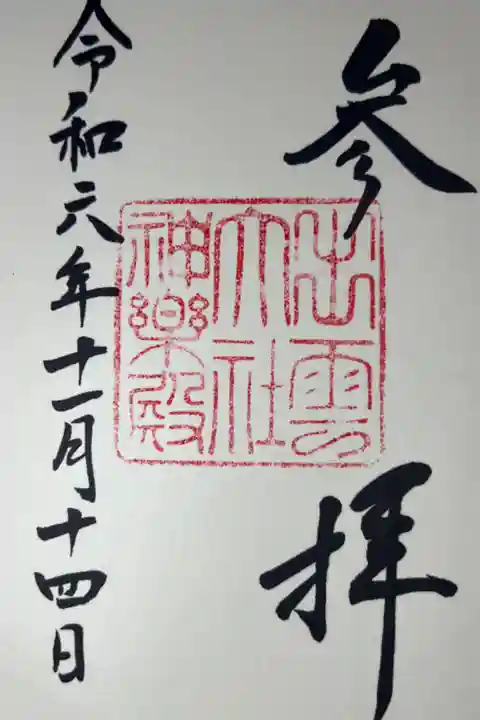 参拝
出雲
大社
神樂殿
令和六年十一月十四日